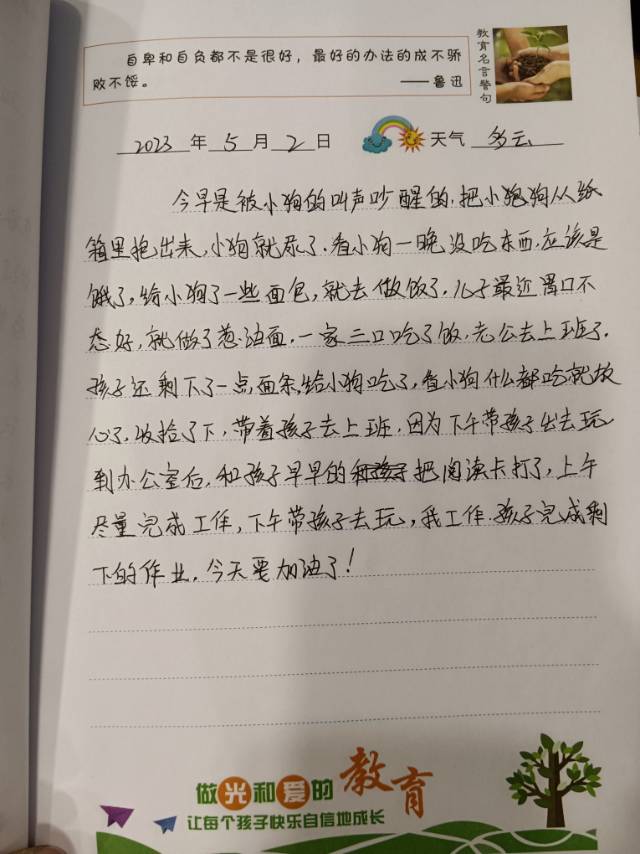 自卑和自负都不是很好，最好的办法的成不骄
败不馁。
——鲁迅
教育名言警句
2023年5月2日 天气 多云
今早是被小狗的叫声吵醒的.把小狗从纸
箱里抱出来,小狗就尿了.看小狗一晚没吃东西,应该是
饿了,给小狗了一些面包,就去做饭了.儿子最近胃口不
太好,就做了葱油面.一家三口吃了饭.老公去上班了.
孩子还剩下了一点面条,给小狗吃了,看小狗什么都吃就放
心了.收捡了下,带着孩子去上班.因为下午带孩子出去玩
到办公室后,和孩子早早的把阅读卡打了,上午
尽量完成工作,下午带孩子去玩,我工作.孩子完成剩
下的作业.今天要加油了!
做光和爱的教育
让每个孩子快乐自信地成长